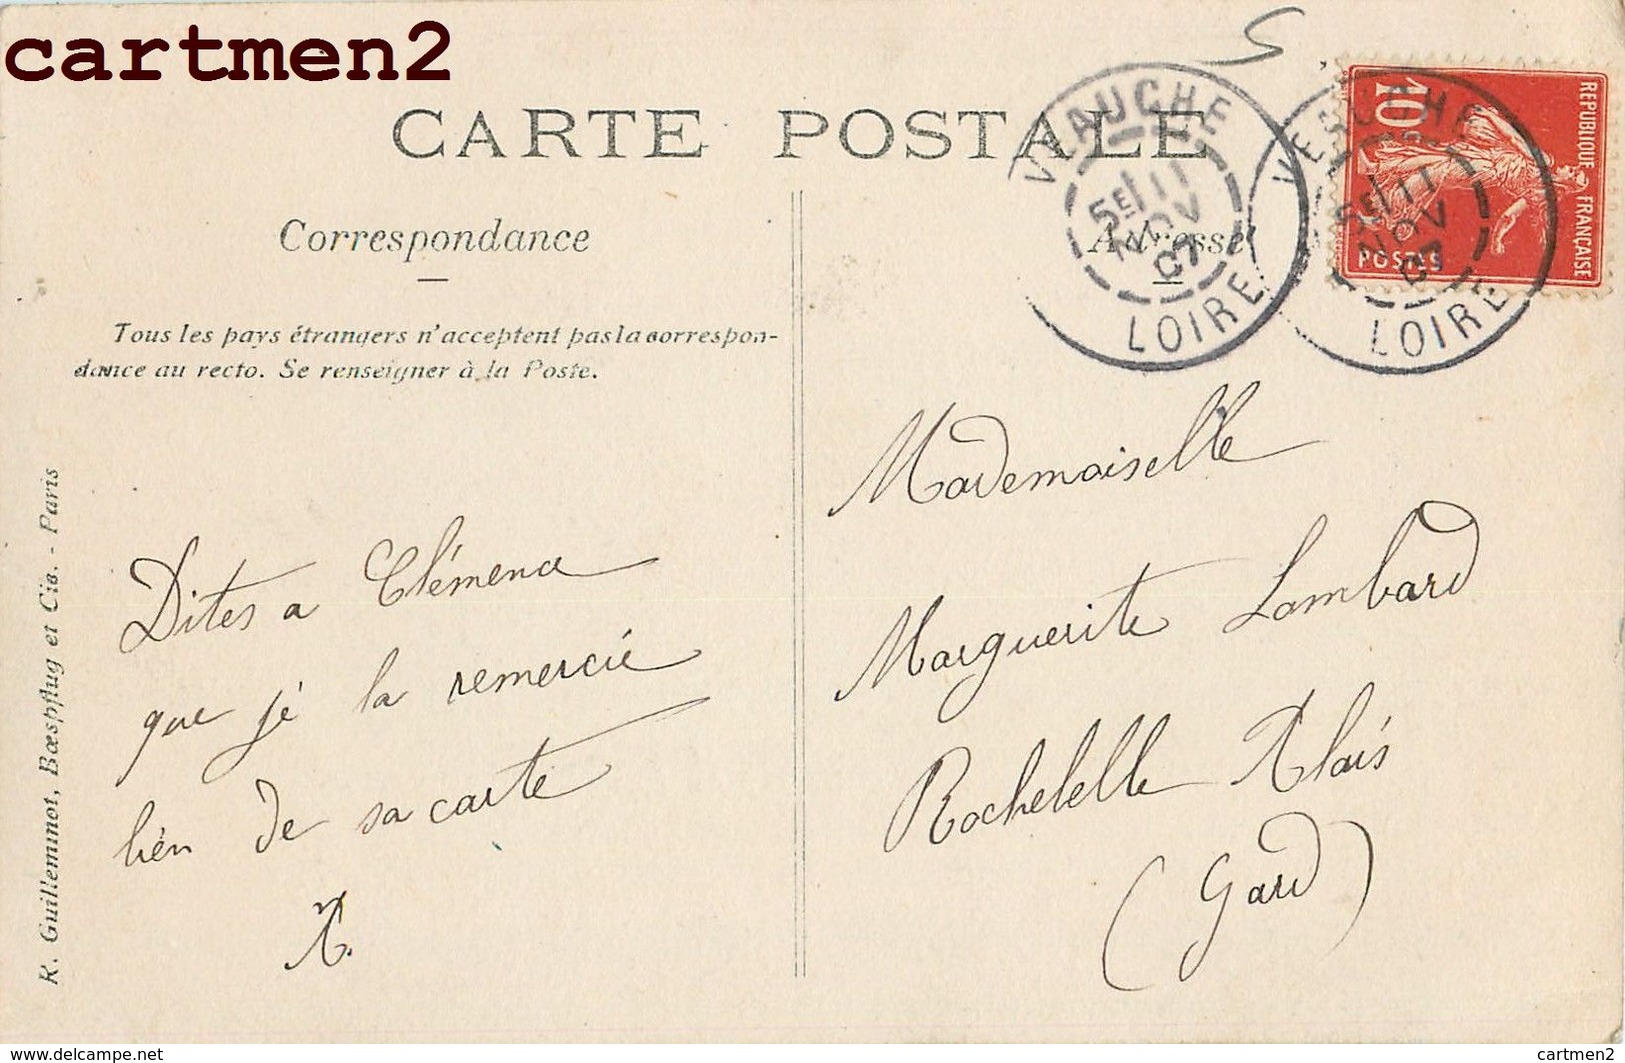 cartmen2
CARTE POSTALE
Correspondance
Adresse
Tous les pays étrangers n'acceptent pas la correspon-
dance au recto. Se renseigner à la Poste.
R. Guillemmot, Bœspflug et Cie. - Paris
VEAUCHE
5E 11
NOV
07
LOIRE
VEAUCHE
5E 11
NOV
07
LOIRE
10c
REPUBLIQUE FRANÇAISE
POSTES
Dites a Clémence
que je la remercie
bien de sa carte
Mademoiselle
Marguerite Lombard
Rochebelle Alais
(Gard)
www.delcampe.net
cartmen2